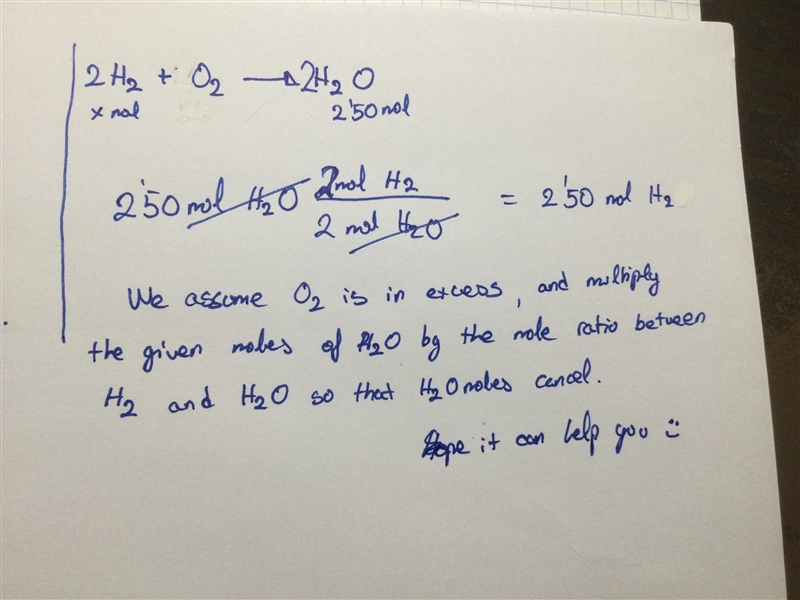 2H₂ + O₂ → 2H₂O
x mol 2'50 mol
2'50 mol H₂O 2 mol H₂ / 2 mol H₂O = 2'50 mol H₂
We assume O₂ is in excess, and multiply
the given moles of H₂O by the mole ratio between
H₂ and H₂O so that H₂O moles cancel.
Hope it can help you :)